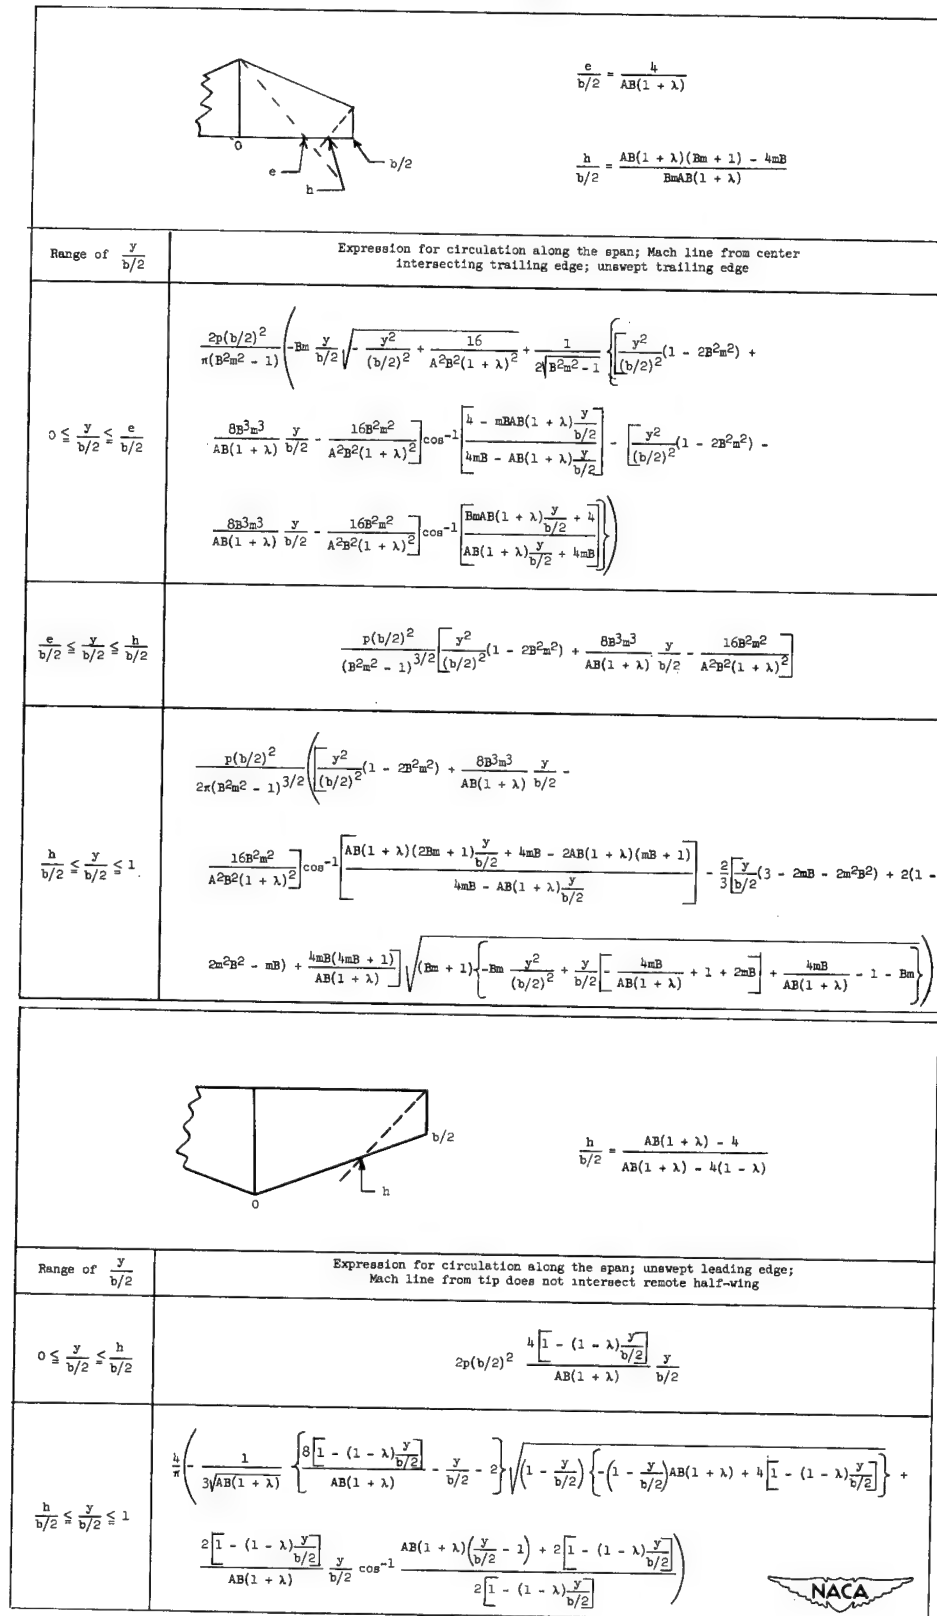 e/(b/2) = 4/(AB(1 + λ))
h/(b/2) = (AB(1 + λ)(Bm + 1) - 4mB)/(BmAB(1 + λ))
0
e
h
b/2
Range of y/(b/2)
Expression for circulation along the span; Mach line from center
intersecting trailing edge; unswept trailing edge
0 ≦ y/(b/2) ≦ e/(b/2)
2p(b/2)²/(π(B²m² - 1)) (-Bm y/(b/2) √(-y²/(b/2)² + 16/(A²B²(1 + λ)²)) + 1/(2√(B²m² - 1)) {[y²/(b/2)² (1 - 2B²m²) +
8B³m³/(AB(1 + λ)) y/(b/2) - 16B²m²/(A²B²(1 + λ)²)] cos⁻¹[(4 - mBAB(1 + λ) y/(b/2))/(4mB - AB(1 + λ) y/(b/2))] - [y²/(b/2)² (1 - 2B²m²) -
8B³m³/(AB(1 + λ)) y/(b/2) - 16B²m²/(A²B²(1 + λ)²)] cos⁻¹[(BmAB(1 + λ) y/(b/2) + 4)/(AB(1 + λ) y/(b/2) + 4mB)]})
e/(b/2) ≦ y/(b/2) ≦ h/(b/2)
p(b/2)²/(B²m² - 1)^(3/2) [y²/(b/2)² (1 - 2B²m²) + 8B³m³/(AB(1 + λ)) y/(b/2) - 16B²m²/(A²B²(1 + λ)²)]
h/(b/2) ≦ y/(b/2) ≦ 1
p(b/2)²/(2π(B²m² - 1)^(3/2)) ([y²/(b/2)² (1 - 2B²m²) + 8B³m³/(AB(1 + λ)) y/(b/2) -
16B²m²/(A²B²(1 + λ)²)] cos⁻¹[(AB(1 + λ)(2Bm + 1) y/(b/2) + 4mB - 2AB(1 + λ)(mB + 1))/(4mB - AB(1 + λ) y/(b/2))] - 2/3 [y/(b/2) (3 - 2mB - 2m²B²) + 2(1 -
2m²B² - mB) + 4mB(4mB + 1)/(AB(1 + λ))] √((Bm + 1){-Bm y²/(b/2)² + y/(b/2) [-4mB/(AB(1 + λ)) + 1 + 2mB] + 4mB/(AB(1 + λ)) - 1 - Bm}))
b/2
h
0
h/(b/2) = (AB(1 + λ) - 4)/(AB(1 + λ) - 4(1 - λ))
Range of y/(b/2)
Expression for circulation along the span; unswept leading edge;
Mach line from tip does not intersect remote half-wing
0 ≦ y/(b/2) ≦ h/(b/2)
2p(b/2)² 4[1 - (1 - λ) y/(b/2)]/(AB(1 + λ)) y/(b/2)
h/(b/2) ≦ y/(b/2) ≦ 1
4/π (-1/(3√(AB(1 + λ))) {8[1 - (1 - λ) y/(b/2)]/(AB(1 + λ)) - y/(b/2) - 2} √((1 - y/(b/2)) {-(1 - y/(b/2))AB(1 + λ) + 4[1 - (1 - λ) y/(b/2)]}) +
2[1 - (1 - λ) y/(b/2)]/(AB(1 + λ)) y/(b/2) cos⁻¹ (AB(1 + λ)(y/(b/2) - 1) + 2[1 - (1 - λ) y/(b/2)])/(2[1 - (1 - λ) y/(b/2)]))
NACA